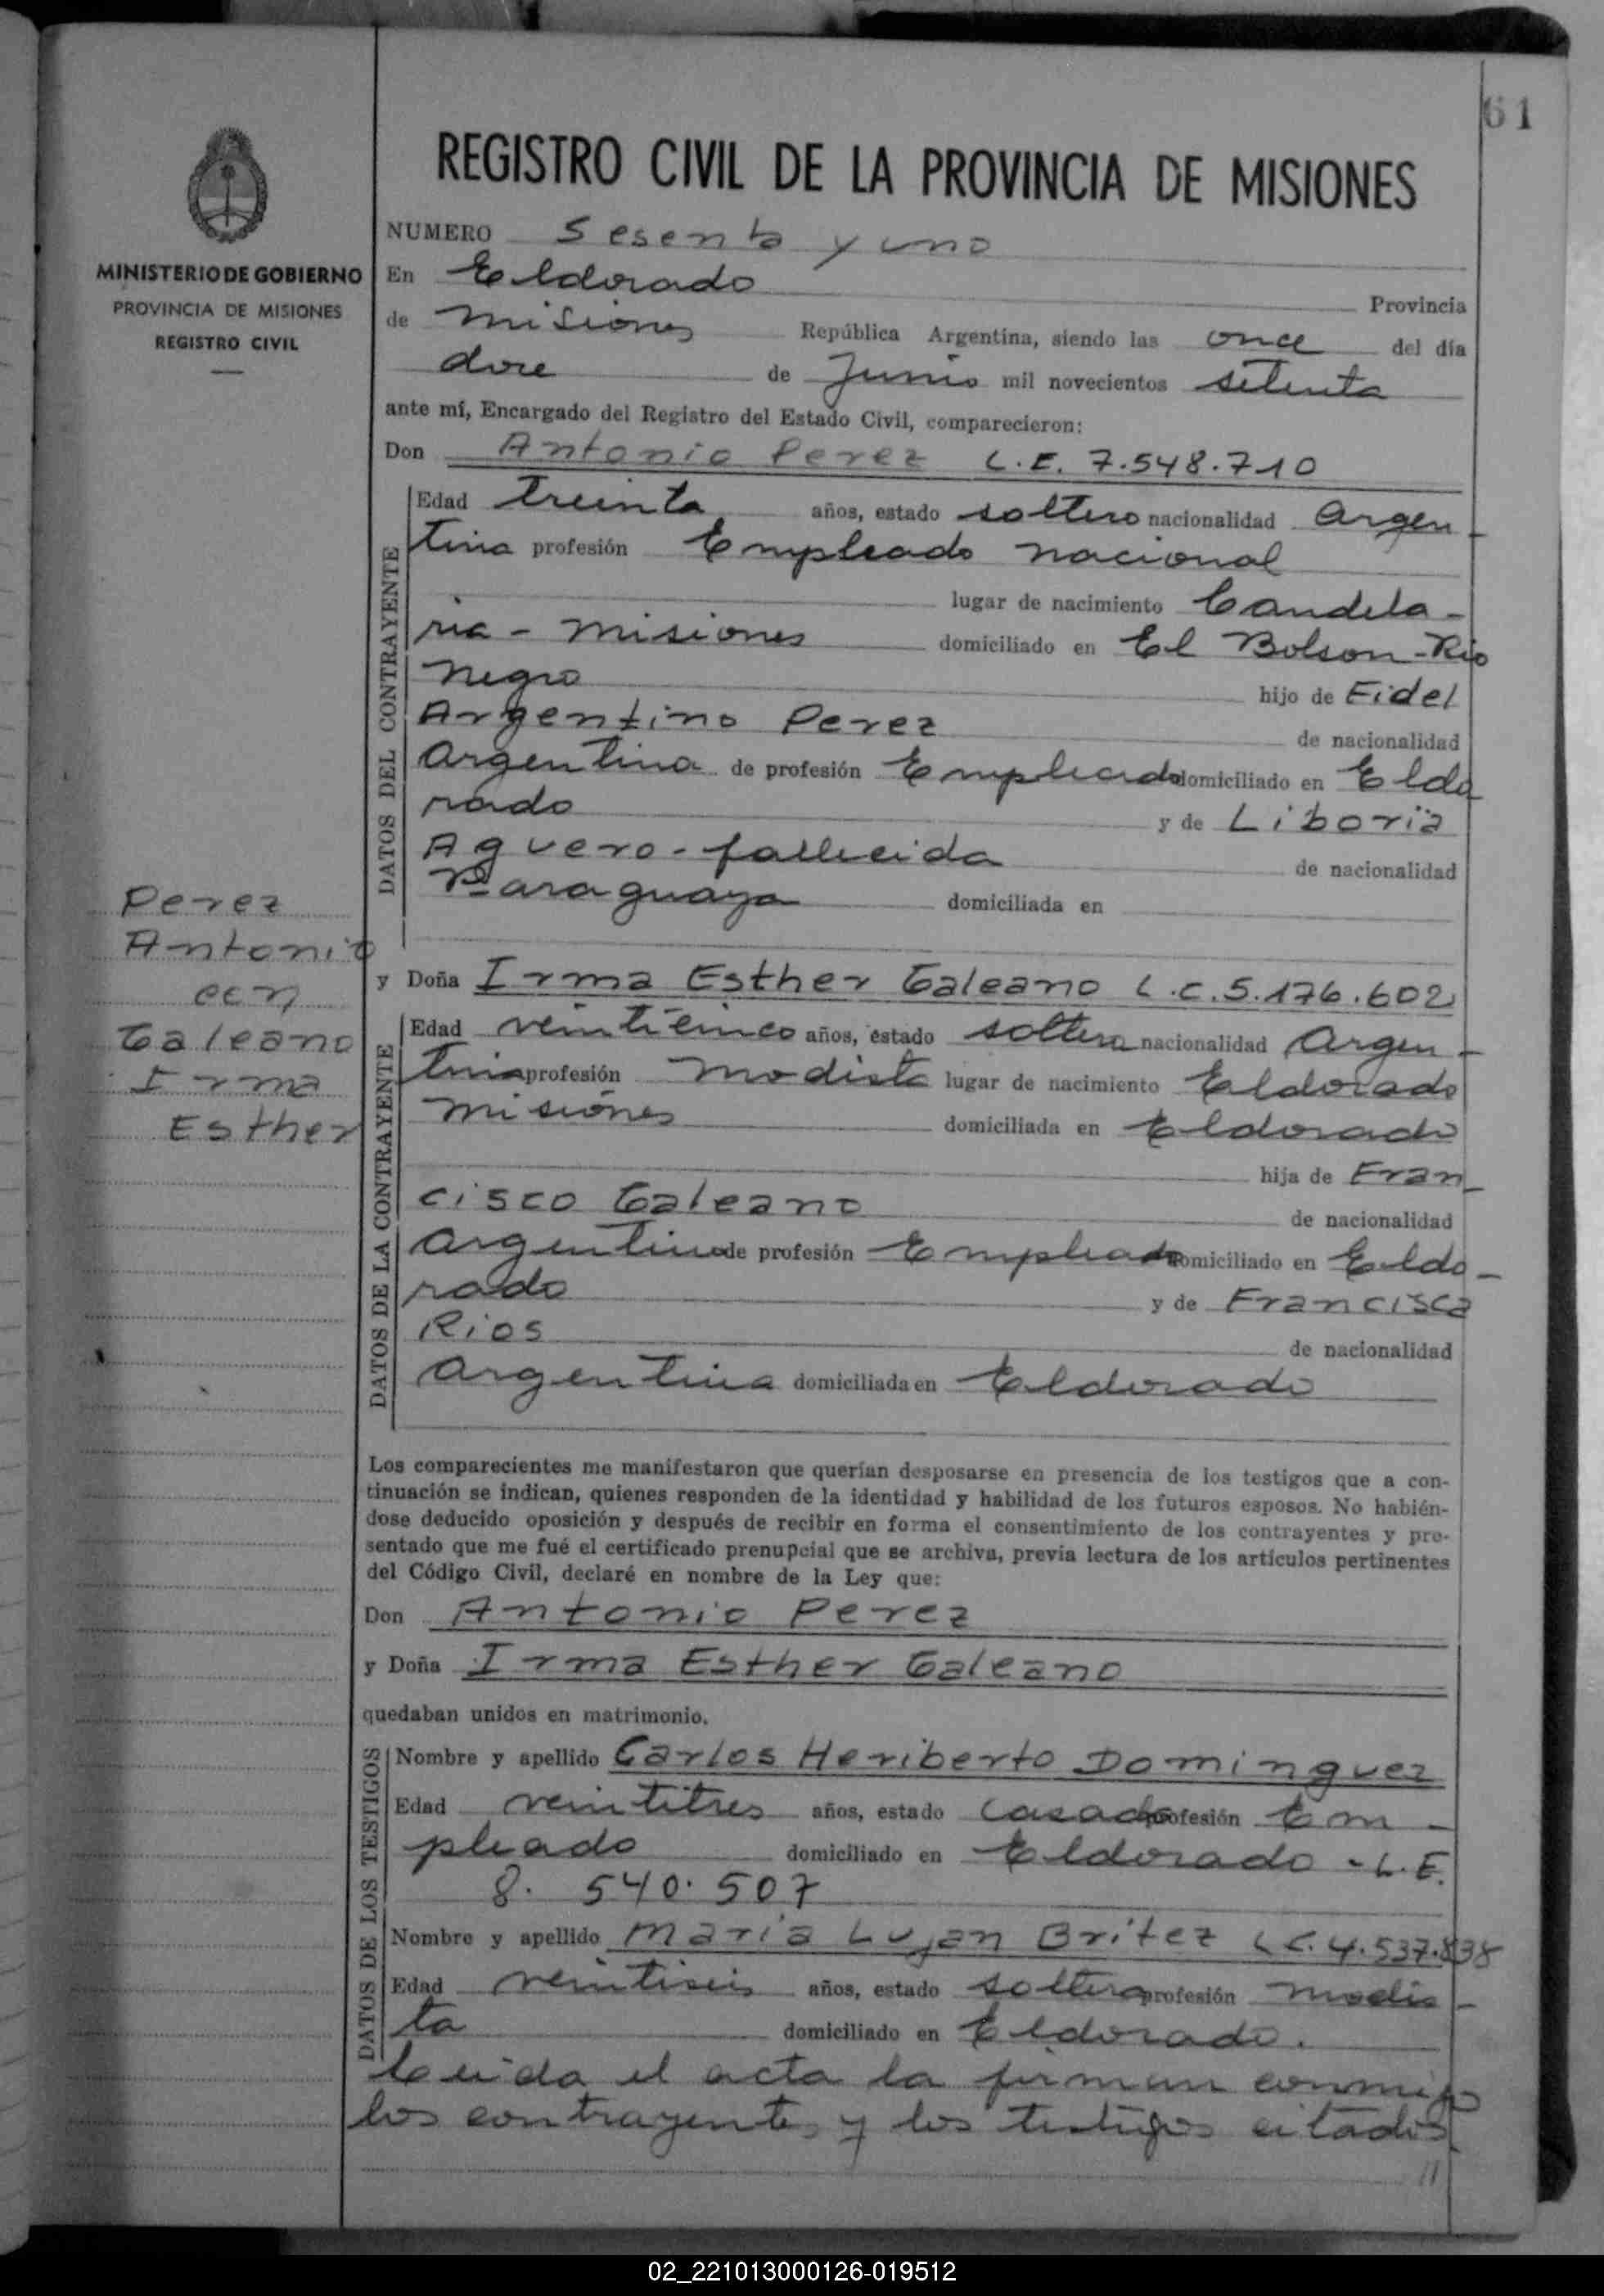 61
REGISTRO CIVIL DE LA PROVINCIA DE MISIONES
MINISTERIO DE GOBIERNO
PROVINCIA DE MISIONES
REGISTRO CIVIL
NUMERO Sesenta y uno
En Eldorado Provincia
de Misiones República Argentina, siendo las once del día
doce de Junio mil novecientos setenta
ante mí, Encargado del Registro del Estado Civil, comparecieron:
Don Antonio Perez L.E. 7.548.710
DATOS DEL CONTRAYENTE
Edad treinta años, estado soltero nacionalidad Argen-
tina profesión Empleado nacional
lugar de nacimiento Candela-
ria - Misiones domiciliado en El Bolson - Rio
Negro hijo de Fidel
Argentino Perez de nacionalidad
Argentina de profesión Empleado domiciliado en Eldo
rado y de Liboria
Aguero - fallecida de nacionalidad
Paraguaya domiciliada en
Perez
Antonio
con
Galeano
Irma
Esther
y Doña Irma Esther Galeano L.C. 5.176.602
DATOS DE LA CONTRAYENTE
Edad veinticinco años, estado soltera nacionalidad Argen-
tina profesión Modista lugar de nacimiento Eldorado
Misiones domiciliada en Eldorado
hija de Fran-
cisco Galeano de nacionalidad
Argentina de profesión Empleado domiciliado en Eldo-
rado y de Francisca
Rios de nacionalidad
Argentina domiciliada en Eldorado
Los comparecientes me manifestaron que querían desposarse en presencia de los testigos que a con-
tinuación se indican, quienes responden de la identidad y habilidad de los futuros esposos. No habién-
dose deducido oposición y después de recibir en forma el consentimiento de los contrayentes y pre-
sentado que me fué el certificado prenupcial que se archiva, previa lectura de los artículos pertinentes
del Código Civil, declaré en nombre de la Ley que:
Don Antonio Perez
y Doña Irma Esther Galeano
quedaban unidos en matrimonio.
DATOS DE LOS TESTIGOS
Nombre y apellido Carlos Heriberto Dominguez
Edad veintitres años, estado casado profesión Em-
pleado domiciliado en Eldorado - L.E.
8.540.507
Nombre y apellido Maria Lujan Britez L.C. 4.537.838
Edad veintiseis años, estado soltera profesión Modis-
ta domiciliado en Eldorado.
Leida el acta la firman conmigo
los contrayentes y los testigos citados
//
02_221013000126-019512